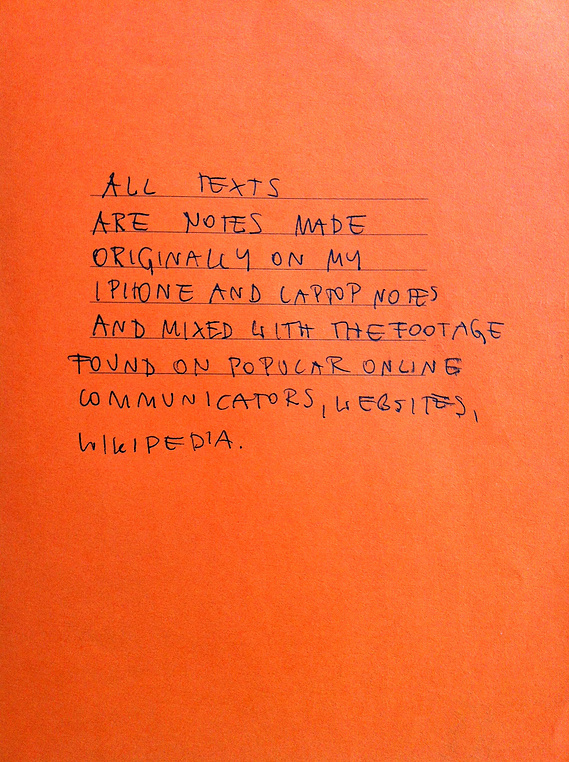 ALL TEXTS
ARE NOTES MADE
ORIGINALLY ON MY
IPHONE AND LAPTOP NOTES
AND MIXED WITH THE FOOTAGE
FOUND ON POPULAR ONLINE
COMMUNICATORS, WEBSITES,
WIKIPEDIA.